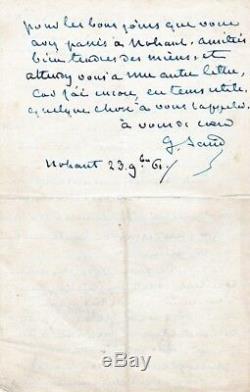 pour les bons jours que vous
avez passés à Nohant. amitiés
bien tendres des miens, et
attendez vous à une autre lettre,
car j'ai encore, en tems utile,
quelque chose à vous rappeler.
à vous de cœur
G. Sand
Nohant 23 9bre 61